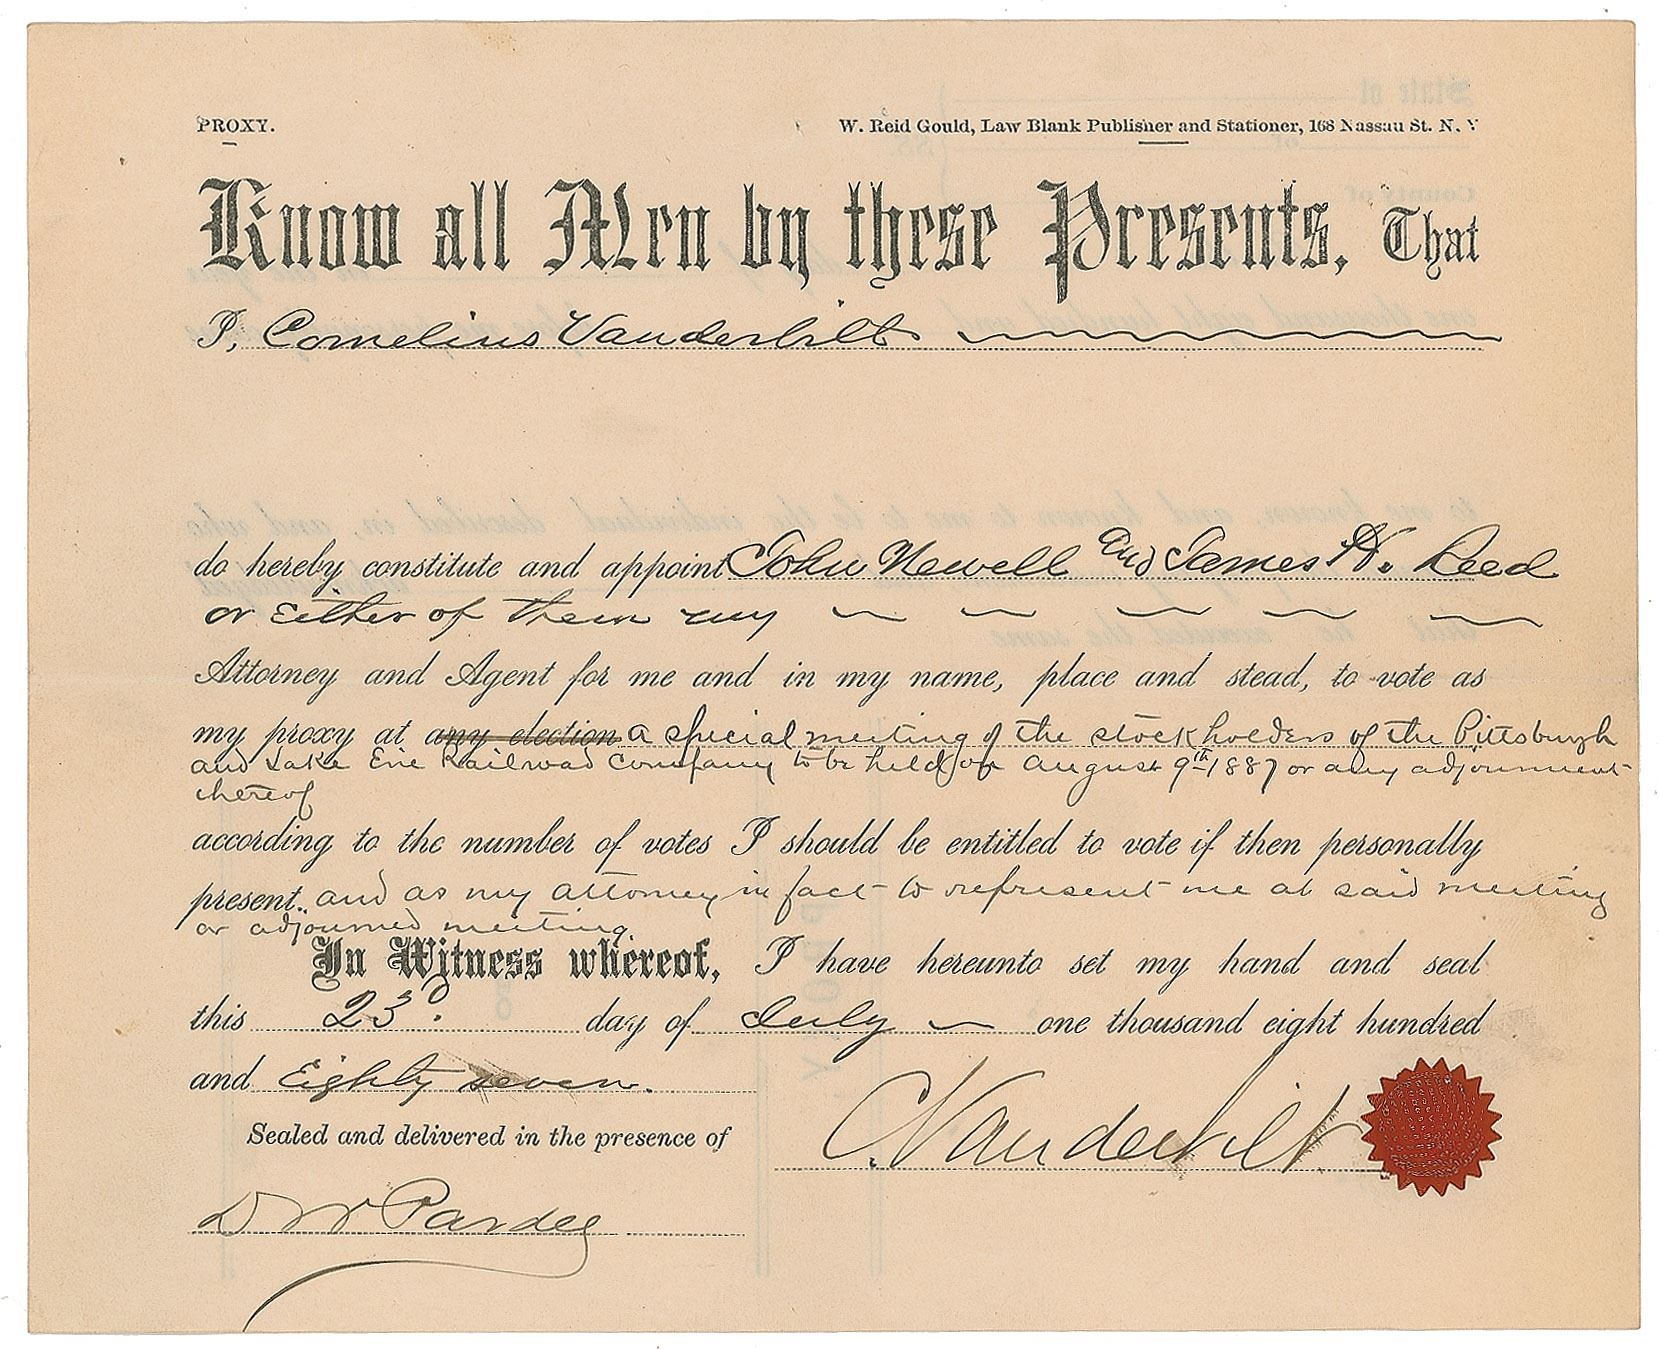 PROXY.
W. Reid Gould, Law Blank Publisher and Stationer, 168 Nassau St. N. Y
Know all Men by these Presents, That
I, Cornelius Vanderbilt
do hereby constitute and appoint John Newell and James H. Reed
or Either of them my
Attorney and Agent for me and in my name, place and stead, to vote as
my proxy at any election a special meeting of the stockholders of the Pittsburgh
and Lake Erie Railroad Company to be held on August 9th 1887 or any adjournment
thereof
according to the number of votes I should be entitled to vote if then personally
present. and as my attorney in fact to represent me at said meeting
or adjourned meeting.
In Witness whereof, I have hereunto set my hand and seal
this 23d. day of July one thousand eight hundred
and Eighty seven.
Sealed and delivered in the presence of
C. Vanderbilt
D W Pardee